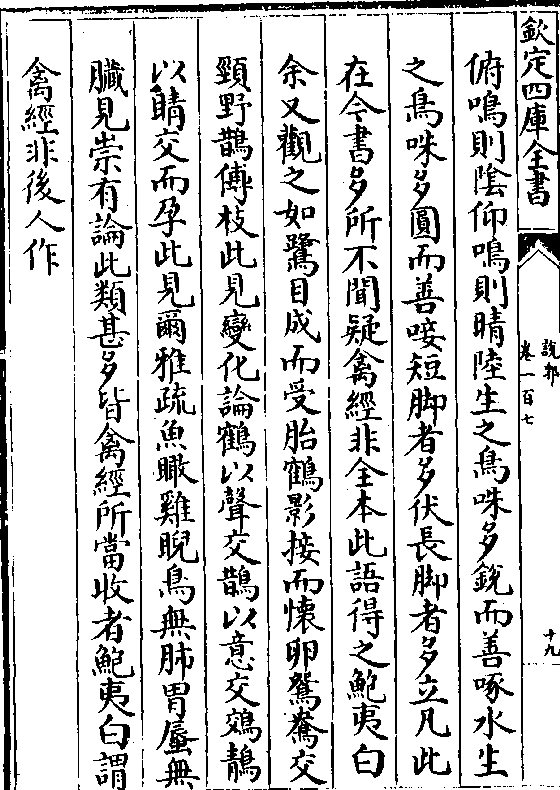 欽定四庫全書
說郛
卷一百七
十九
俯鳴則陰仰鳴則晴陸生之鳥咮多銳而善啄水生
之鳥咮多圓而善唼短脚者多伏長脚者多立凡此
在今書多所不聞疑禽經非全本此語得之鮑夷白
余又觀之如鷺目成而受胎鶴影接而懷卵鴛鴦交
頸野鵲傅枝此見變化論鶴以聲交鵲以意交鵁鶄
以睛交而孕此見爾雅疏魚瞰雞睨鳥無肺胃蜃無
臟見崇有論此類甚多皆禽經所當收者鮑夷白謂
禽經非後人作